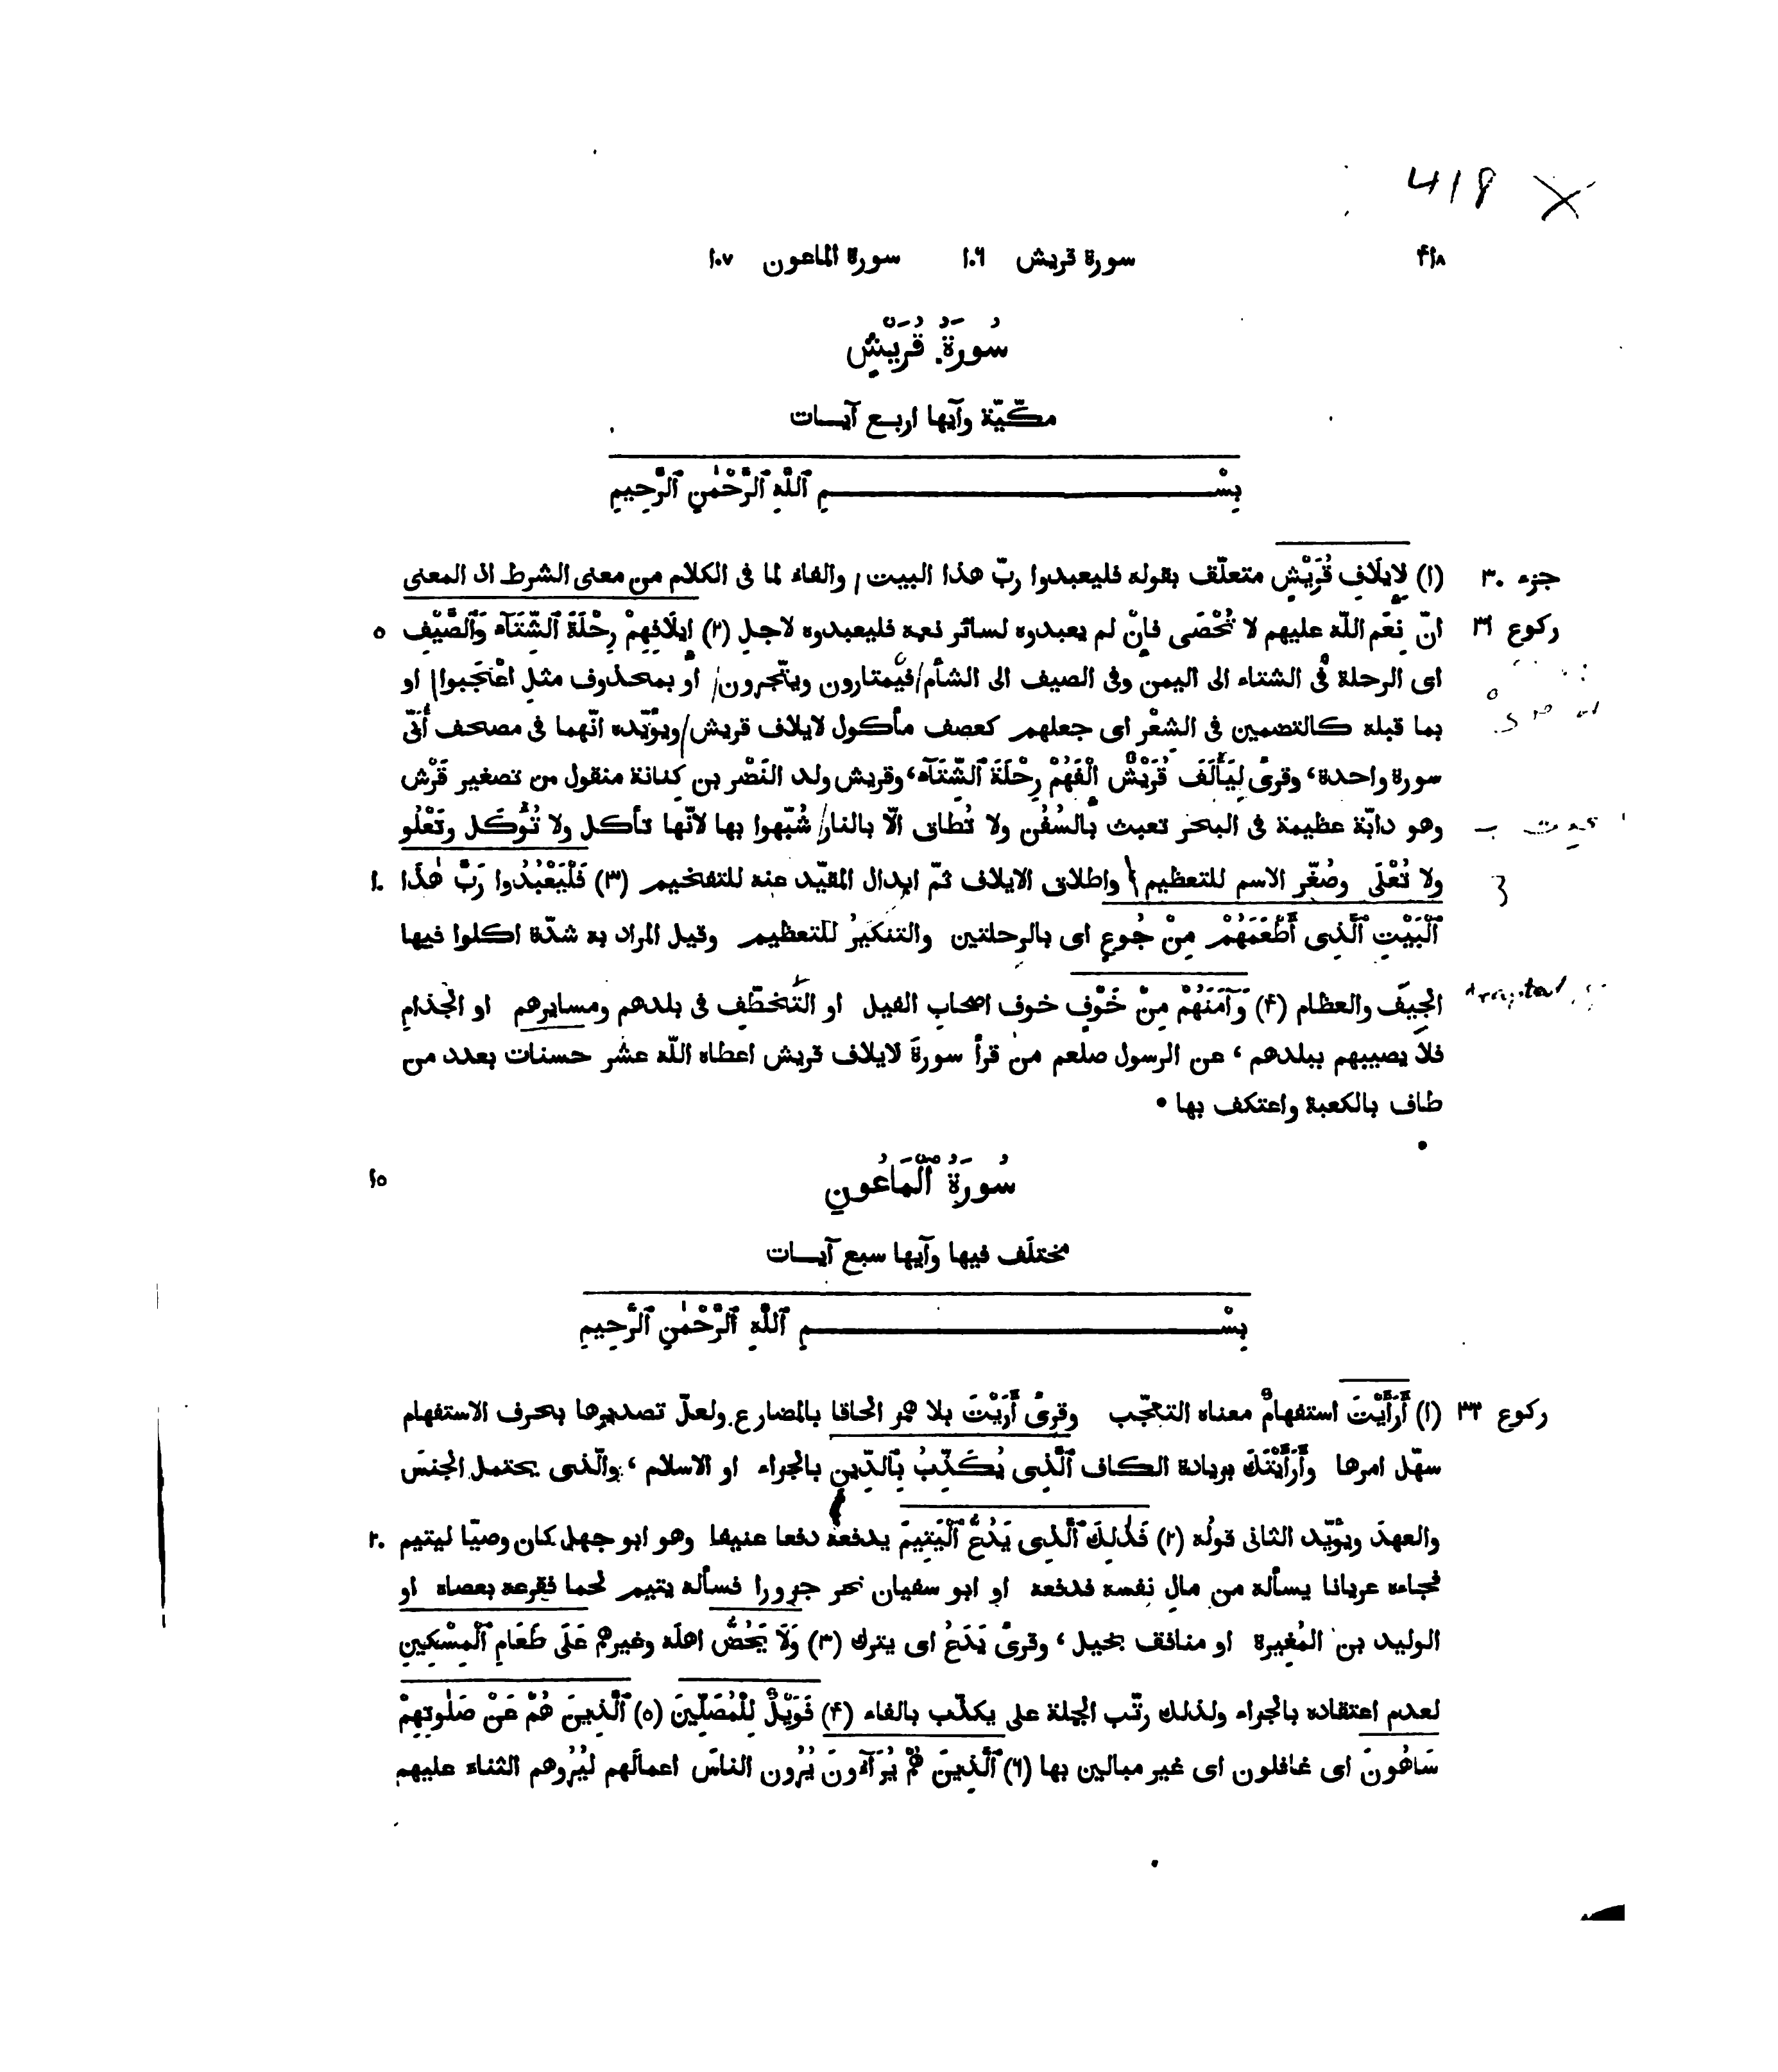 418
٤١٨ سورة قريش ١٠٦ سورة الماعون ١٠٧
سُورَةُ قُرَيْشٍ
مكّيّة وآيها اربع آيات
بِسْمِ ٱللَّهِ ٱلرَّحْمٰنِ ٱلرَّحِيمِ
جزء ٣٠ (١) لِإِيلَافِ قُرَيْشٍ متعلّق بقوله فليعبدوا ربّ هذا البيت، والفاء لما فى الكلام من معنى الشرط اذ المعنى
ركوع ٣١ انّ نِعَم اللّه عليهم لا تُحْصَى فإنْ لم يعبدوه لسائر نعمه فليعبدوه لاجلِ (٢) إِيلَافِهِمْ رِحْلَةَ ٱلشِّتَآءِ وَٱلصَّيْفِ ٥
اى الرحلة فى الشتاء الى اليمن وفى الصيف الى الشأم فيَمتارون ويتّجرون، أو بمحذوف مثلِ اعْتَجِبوا او
بما قبله كالتضمين فى الشعْر اى جعلهم كعصف مأكول لايلاف قريش ويؤيّده انّهما فى مصحف أُبَيّ
سورة واحدة، وقرئ لِيَأْلَفَ قُرَيْشٌ إِلْفَهُمْ رِحْلَةَ ٱلشِّتَآءِ، وقريش ولد النَضْر بن كِنانة منقول من تصغير قَرْش
وهو دابّة عظيمة فى البحر تعبث بالسُفُن ولا تُطاق الّا بالنار شُبّهوا بها لانّها تأكل ولا تُؤْكَل وتَعْلُو
ولا تُعْلَى وصُغّر الاسم للتعظيم واطلاق الايلاف ثمّ ابدال المقيّد عنه للتفخيم (٣) فَلْيَعْبُدُوا رَبَّ هٰذَا ١٠
ٱلْبَيْتِ ٱلَّذِى أَطْعَمَهُمْ مِنْ جُوعٍ اى بالرحلتين والتنكيرُ للتعظيم وقيل المراد به شدّة اكلوا فيها
الجِيَف والعظام (٤) وَآمَنَهُمْ مِنْ خَوْفٍ خوف اصحاب الفيل او التَخطّف فى بلدهم ومسايرهم او الجُذامِ
فلا يصيبهم ببلدهم، عن الرسول صلعم من قرأ سورةَ لايلاف قريش اعطاه اللّه عشر حسنات بعدد من
طاف بالكعبة واعتكف بها •
سُورَةُ ٱلْمَاعُونِ ١٥
مختلَف فيها وآيها سبع آيات
بِسْمِ ٱللَّهِ ٱلرَّحْمٰنِ ٱلرَّحِيمِ
ركوع ٣٢ (١) أَرَأَيْتَ استفهامٌ معناه التعجّب وقرئ أَرَيْتَ بلا همز الحاقا بالمضارع ولعلّ تصديرها بحرف الاستفهام
سهّل امرها وأَرَأَيْتَكَ بزيادة الكاف ٱلَّذِى يُكَذِّبُ بِٱلدِّينِ بالجزاء او الاسلام، والّذى يحتمل الجنسَ
والعهدَ ويؤيّد الثانى قولُه (٢) فَذٰلِكَ ٱلَّذِى يَدُعُّ ٱلْيَتِيمَ يدفعه دفعا عنيفا وهو ابو جهل كان وصيّا ليتيم ٢٠
فجاءه عريانا يسأله من مالِ نفسه فدفعه او ابو سفيان نحر جزورا فسأله يتيم لحما فقرعه بعصاه او
الوليد بن المُغيرة او منافق بخيل، وقرئ يَدَعُ اى يترك (٣) وَلَا يَحُضُّ اهلَه وغيرهم عَلَى طَعَامِ ٱلْمِسْكِينِ
لعدم اعتقاده بالجزاء ولذلك رتّب الجملة على يكذّب بالفاء (٤) فَوَيْلٌ لِلْمُصَلِّينَ (٥) ٱلَّذِينَ هُمْ عَنْ صَلٰوتِهِمْ
سَاهُونَ اى غافلون اى غير مبالين بها (٦) ٱلَّذِينَ هُمْ يُرَآءُونَ يُرُون الناسَ اعمالَهم ليُرُوهم الثناء عليهم